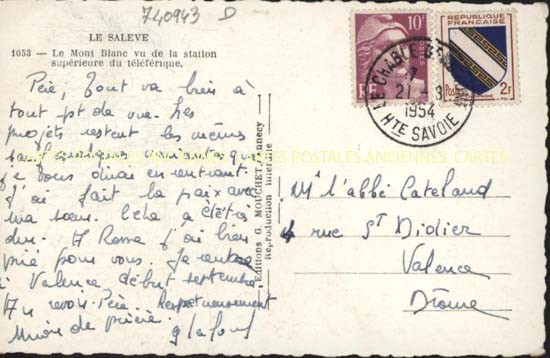 740943 D
LE SALEVE
1053 — Le Mont Blanc vu de la station
supérieure du téléférique.
Père, Tout va bien à
tout pt de vue. Les
projets restent les mêmes
sauf quelques variantes que
je vous dirai en rentrant.
J'ai fait la paix avec
ma sœur. Cela a été
dur. A Rome j'ai bien
prié pour vous. Je rentre
à Valence début septembre.
Au revoir Père. Respectueusement
Union de prière.
CARTES POSTALES ANCIENNES CARTES
Editions G. MOUCHET, Annecy
Reproduction interdite
RF
10F
REPUBLIQUE
FRANÇAISE
Postes
2F
LE CHABLE
21-8
1954
HTE SAVOIE
Mr l'abbé Cateland
4 rue St Didier
Valence
Drôme